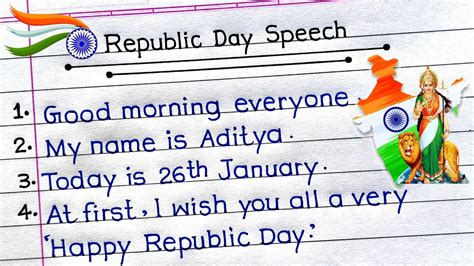 Republic Day Speech
1. Good morning everyone.
2. My name is Aditya.
3. Today is 26th January.
4. At first, I wish you all a very
'Happy Republic Day.'